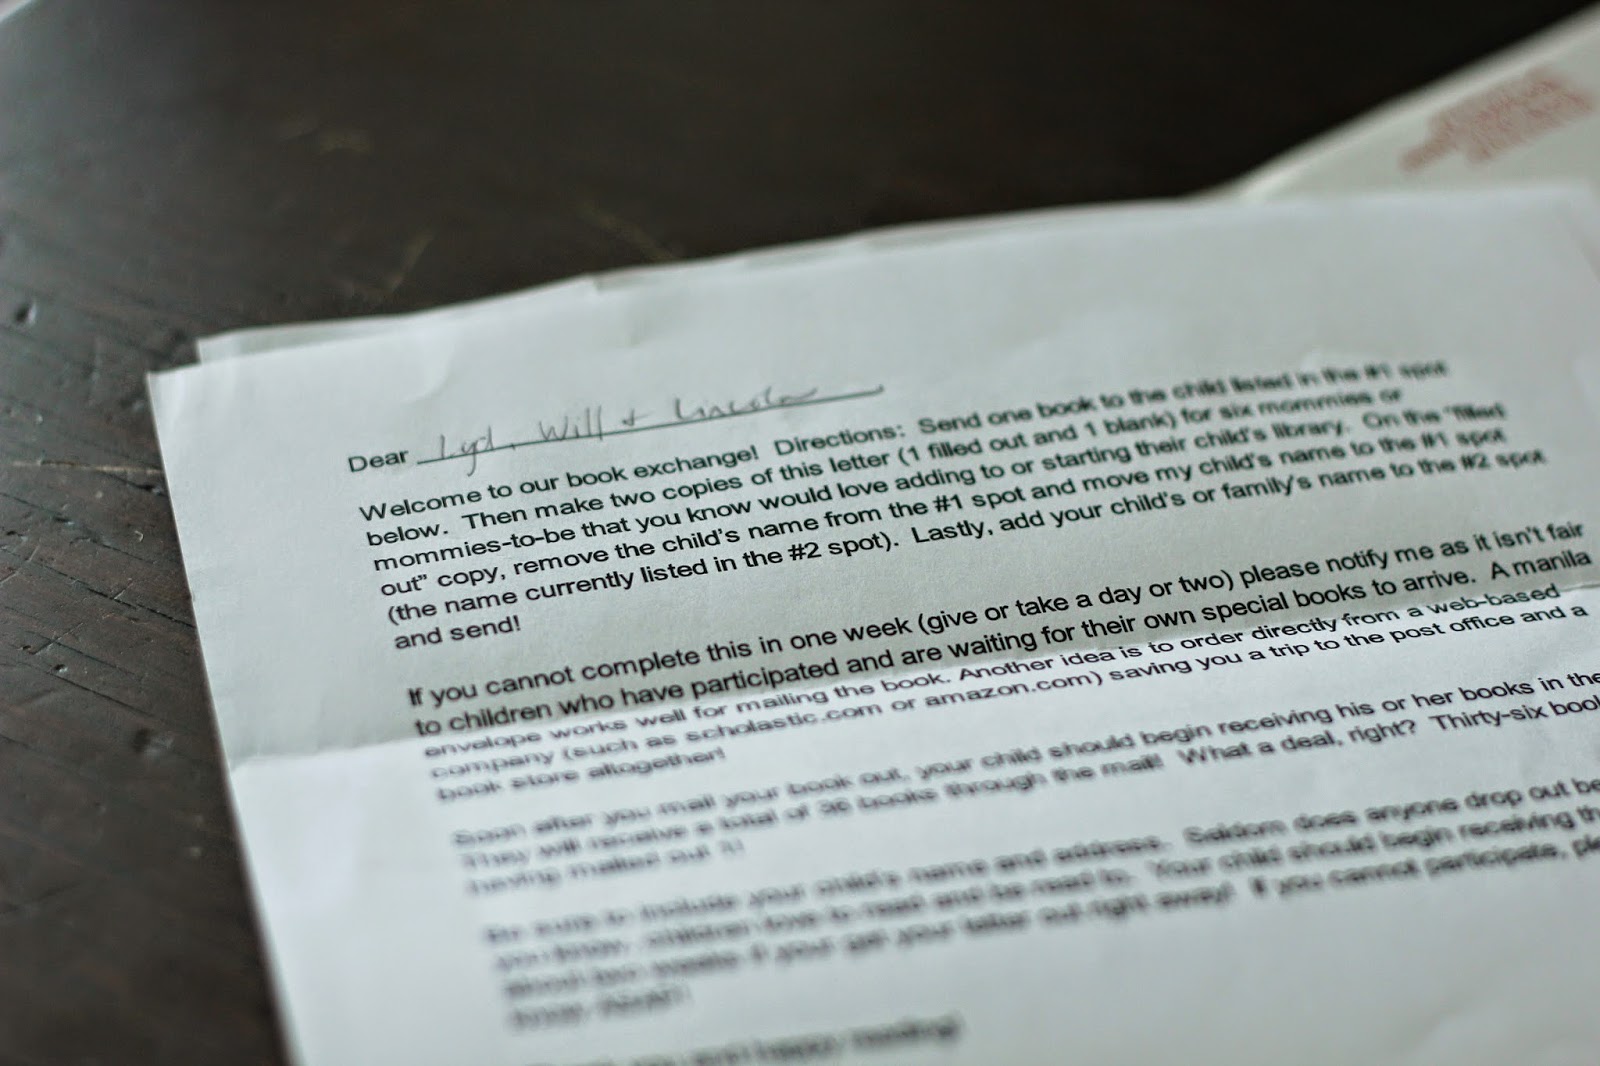 Dear Lyd, Will + Lincoln
Welcome to our book exchange! Directions: Send one book to the child listed in the #1 spot
below. Then make two copies of this letter (1 filled out and 1 blank) for six mommies or
mommies-to-be that you know would love adding to or starting their child's library. On the "filled
out" copy, remove the child's name from the #1 spot and move my child's name to the #1 spot
(the name currently listed in the #2 spot). Lastly, add your child's or family's name to the #2 spot
and send!
If you cannot complete this in one week (give or take a day or two) please notify me as it isn't fair
to children who have participated and are waiting for their own special books to arrive. A manila
envelope works well for mailing the book. Another idea is to order directly from a web-based
company (such as scholastic.com or amazon.com) saving you a trip to the post office and a
book store altogether!
Soon after you mail your book out, your child should begin receiving his or her books in the
They will receive a total of 36 books through the mail! What a deal, right? Thirty-six
having mailed out 1!
Be sure to include your child's name and address. Seldom does anyone drop out
you know, children love to read and be read to. Your child should begin receiving
about two weeks if your get your letter out right away! If you cannot participate,
happy reading!